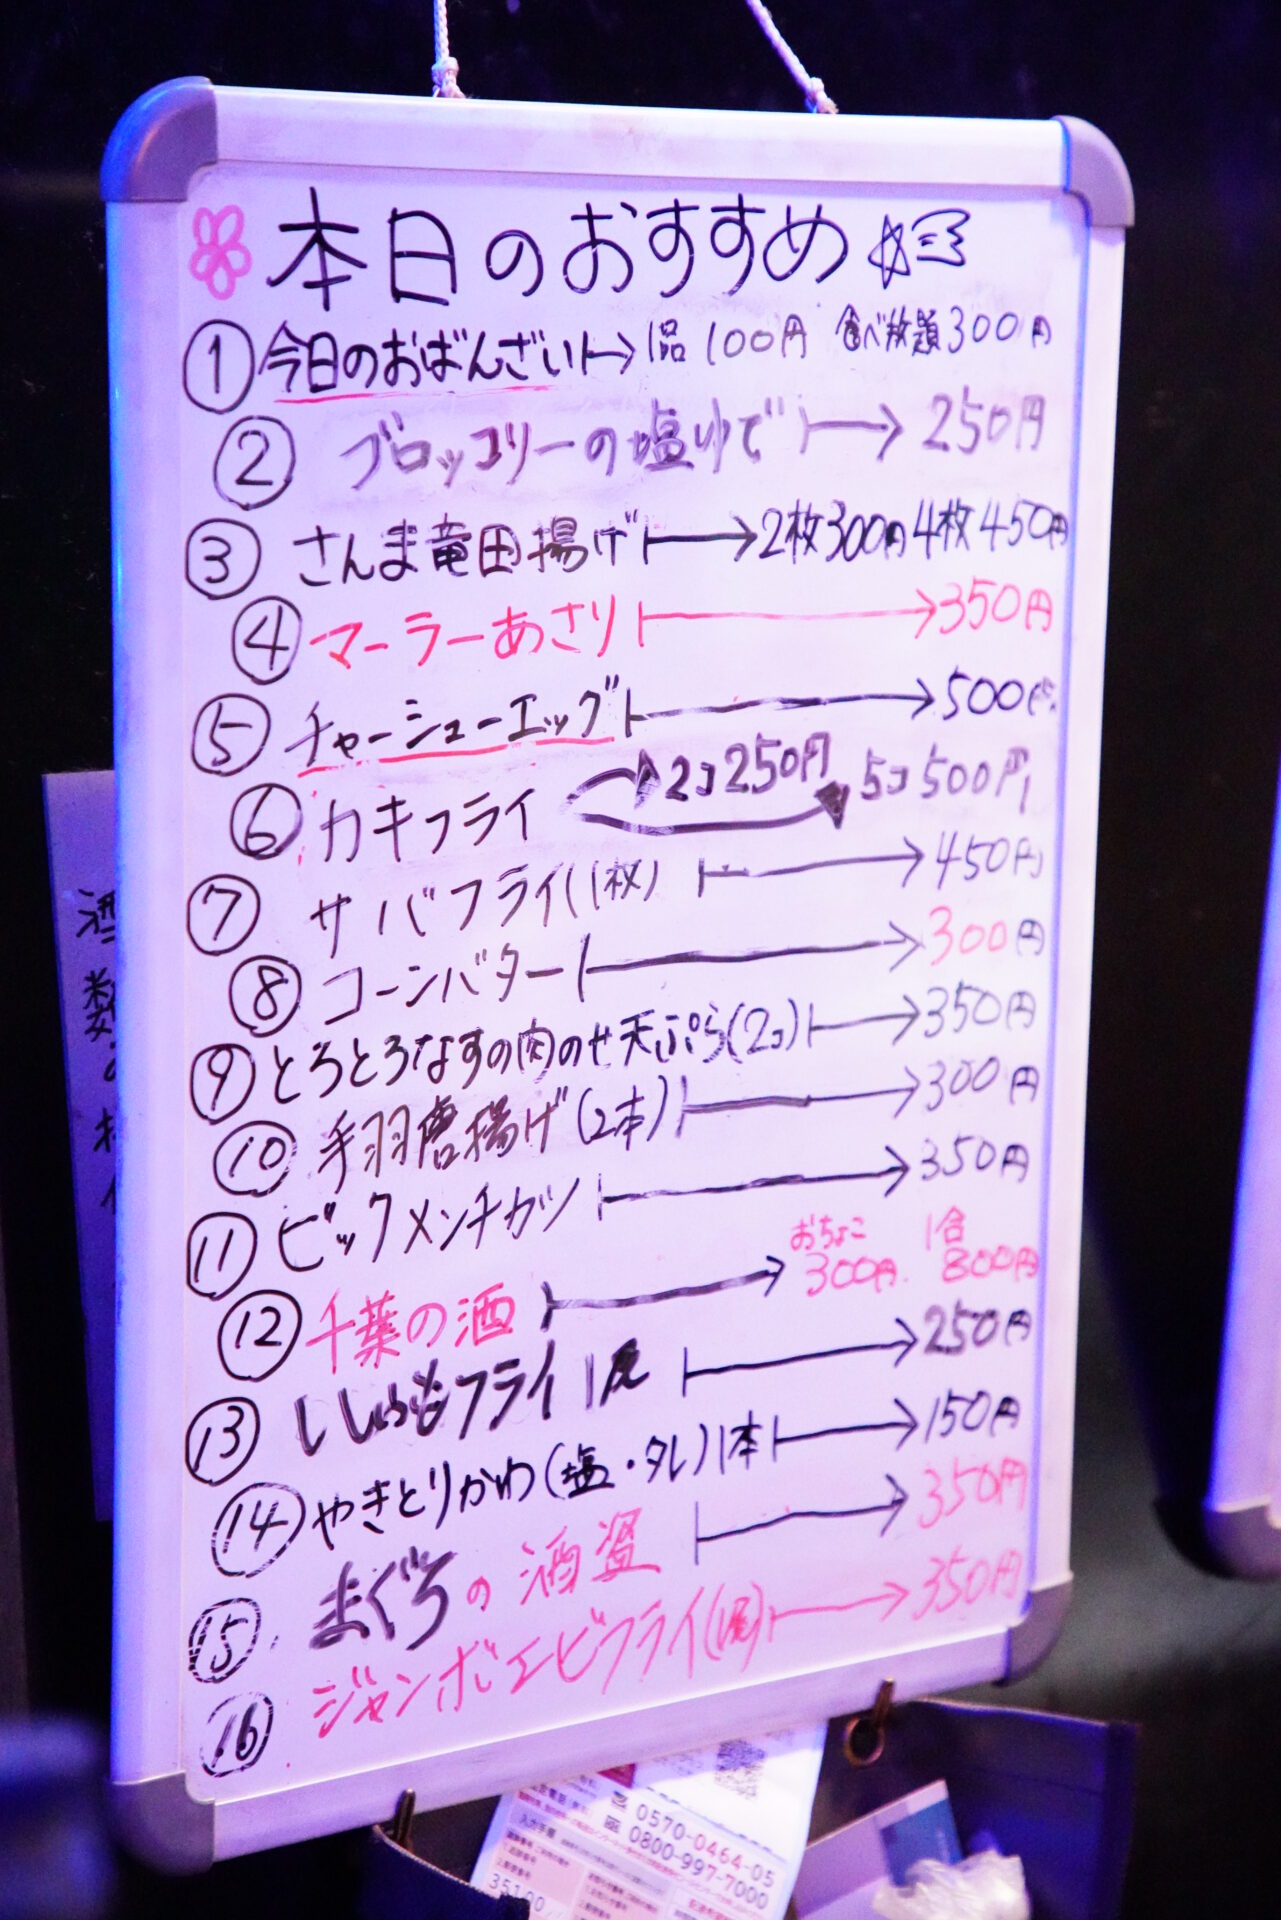 本日のおすすめ
① 今日のおばんざい → 1品 100円 食べ放題 300円
② ブロッコリーの塩ゆで → 250円
③ さんま竜田揚げ → 2枚300円 4枚450円
④ マーラーあさり → 350円
⑤ チャーシューエッグ → 500円
⑥ カキフライ → 2コ250円 → 5コ500円
⑦ サバフライ(1枚) → 450円
⑧ コーンバター → 300円
⑨ とろとろなすの肉のせ天ぷら(2コ) → 350円
⑩ 手羽唐揚げ(2本) → 300円
⑪ ビックメンチカツ → 350円
⑫ 千葉の酒 → おちょこ 300円 1合 800円
⑬ ししゃもフライ 1尾 → 250円
⑭ やきとりかわ(塩・タレ)1本 → 150円
⑮ まぐろの酒盗 → 350円
⑯ ジャンボエビフライ(1尾) → 350円
酒
数
0570-0464-05
0800-997-7000
入力手順
35100